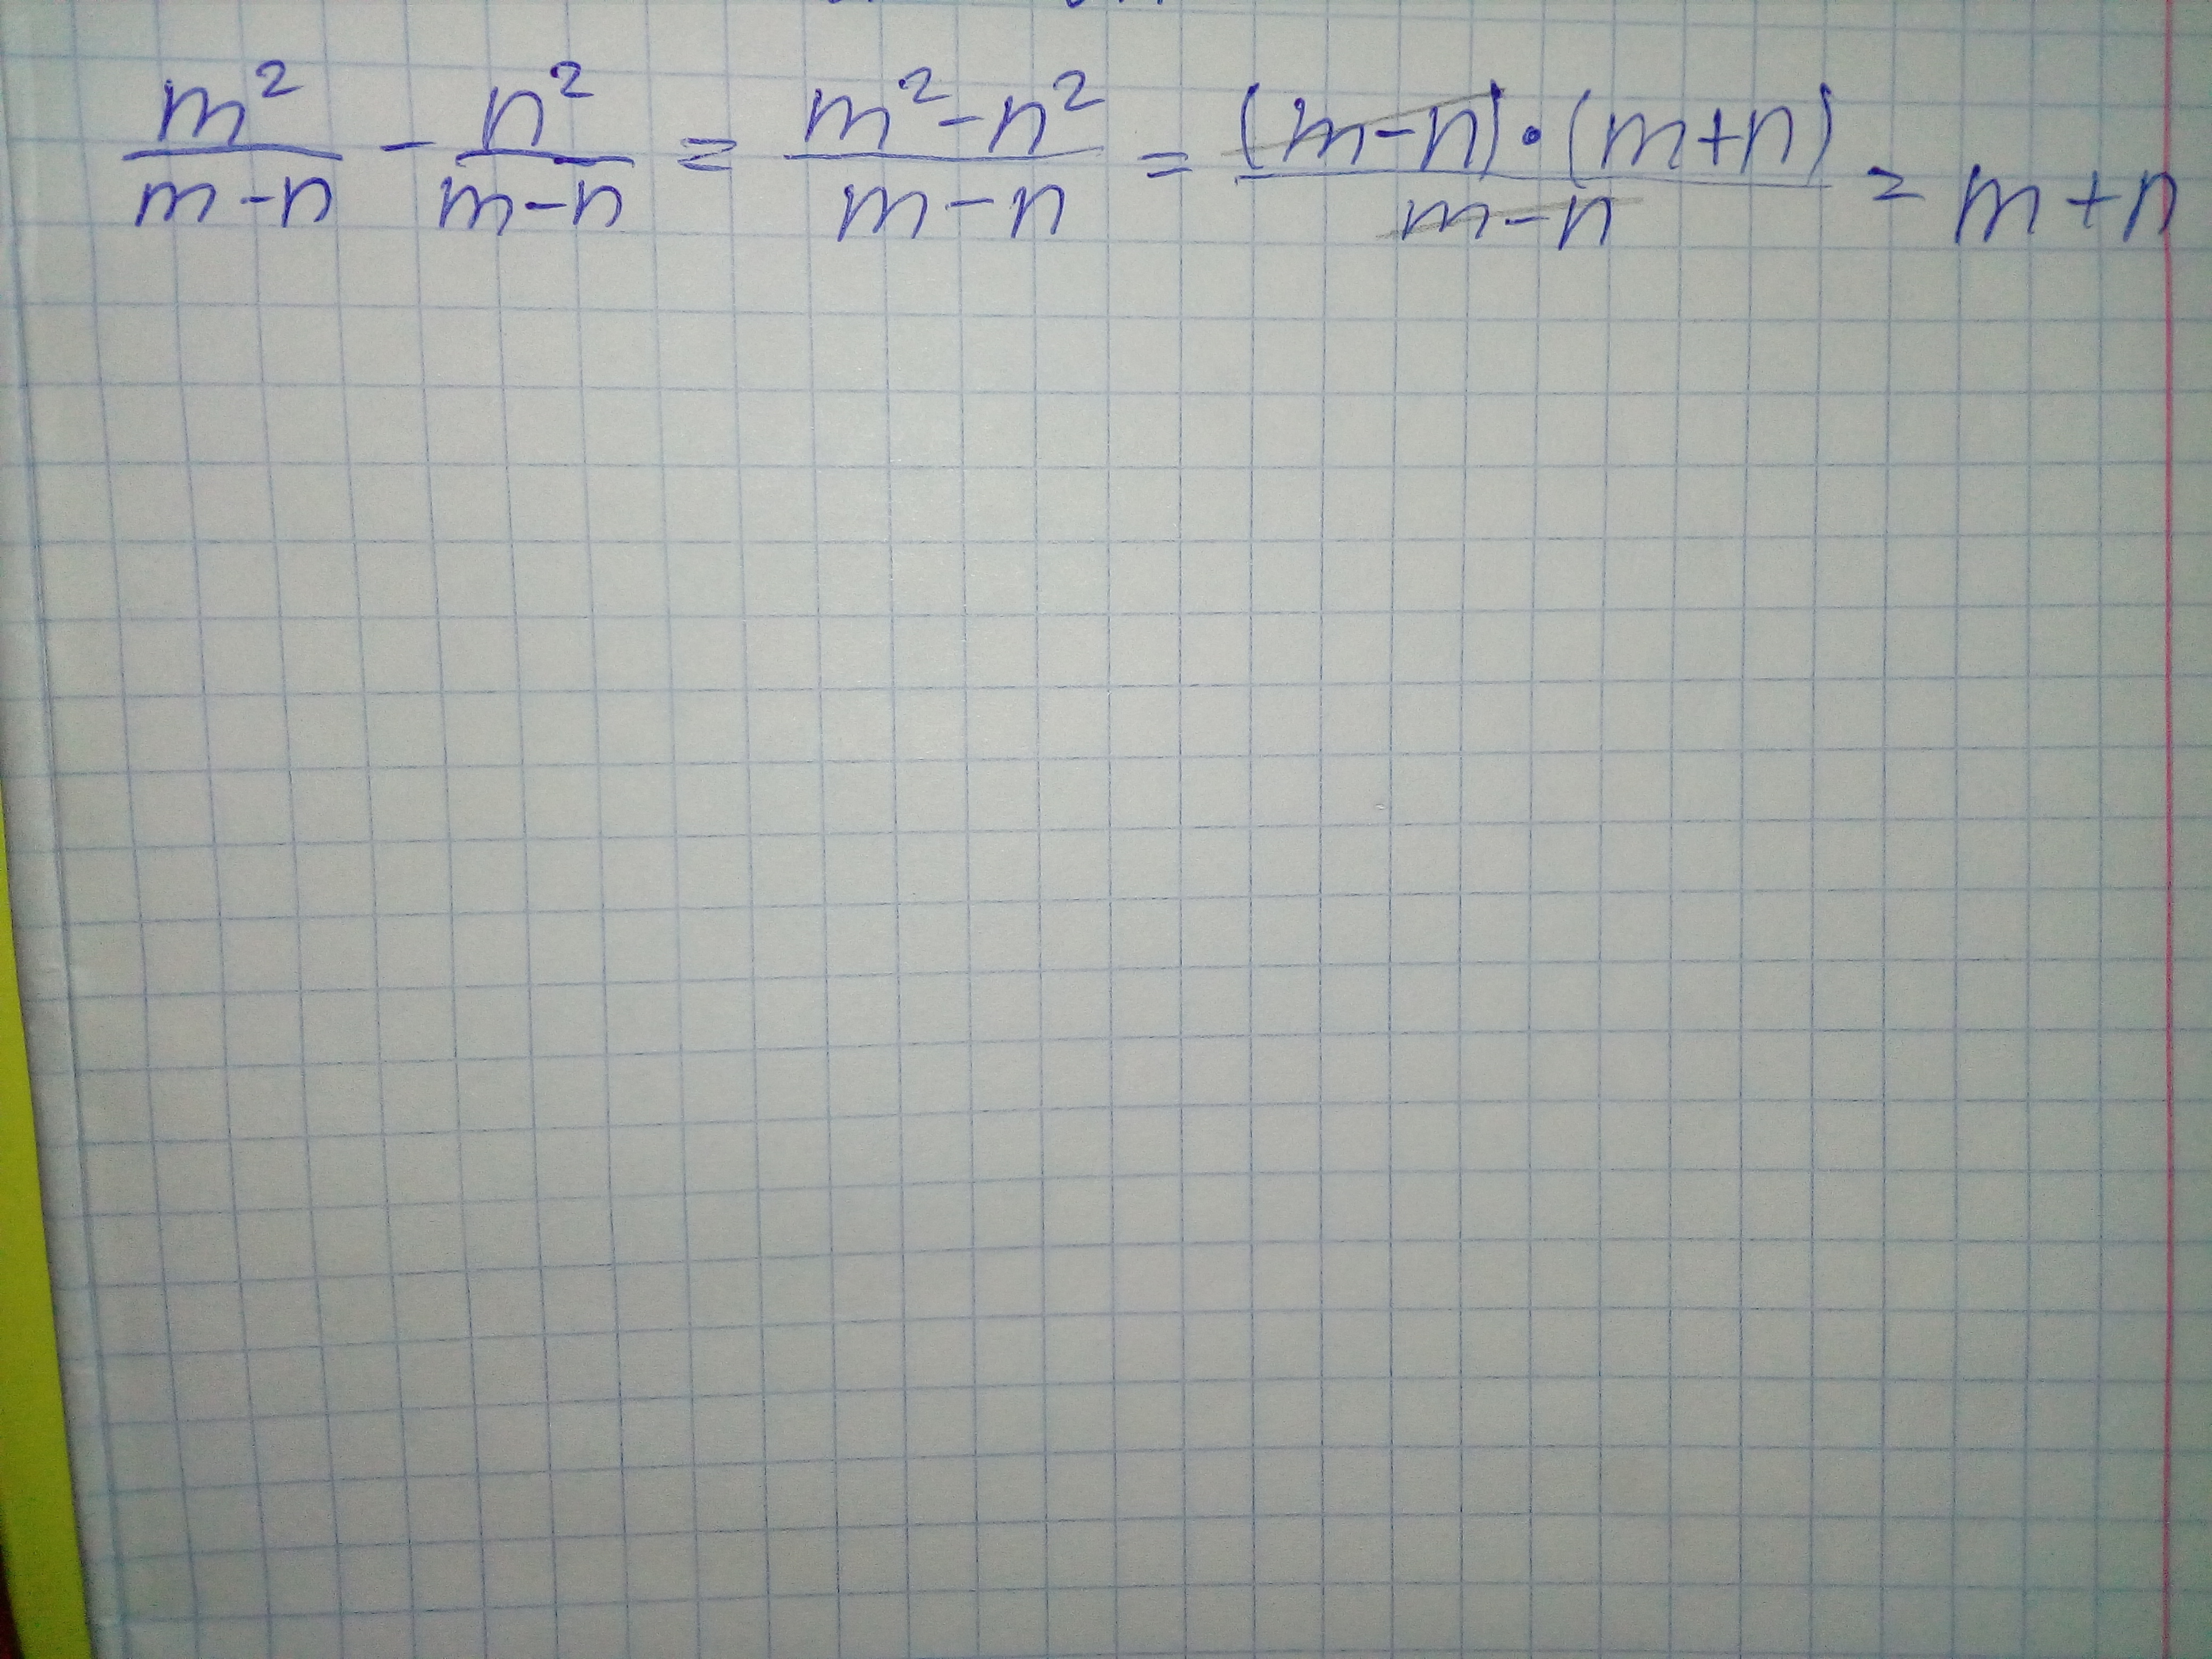 m²/(m-n) - n²/(m-n) = (m²-n²)/(m-n) = ((m-n)·(m+n))/(m-n) = m+n